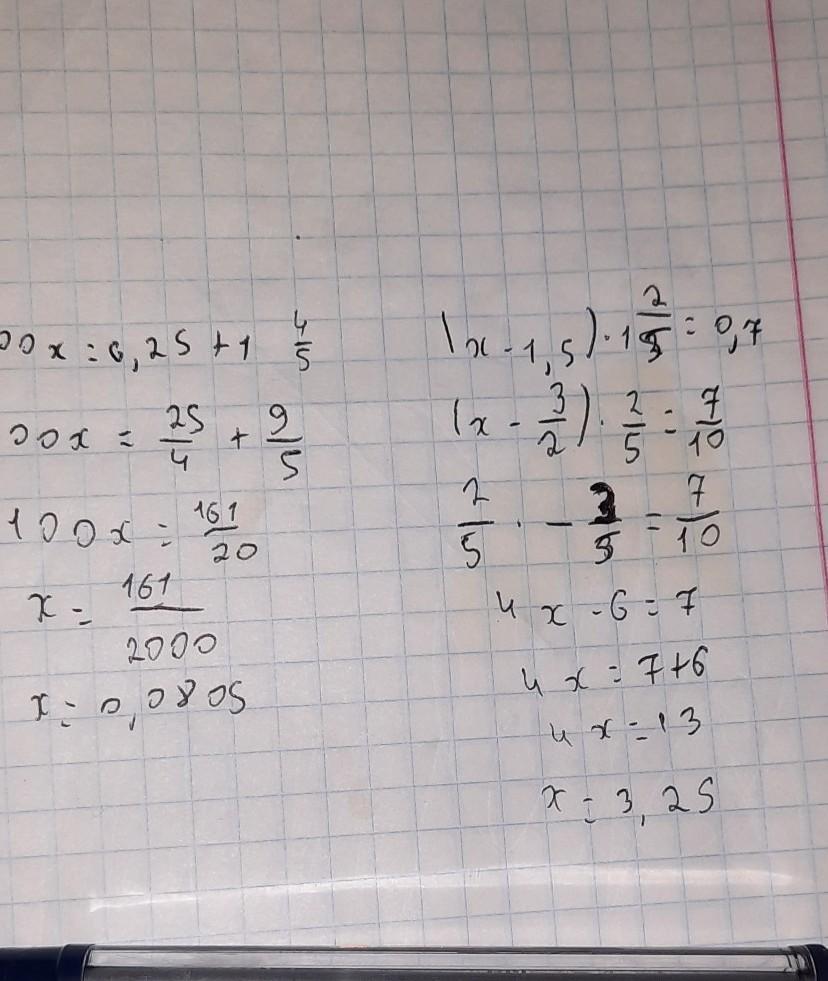 00x = 6,25 + 1 4/5
00x = 25/4 + 9/5
100x = 161/20
x = 161/2000
x = 0,0805
(x - 1,5) · 1 2/5 = 0,7
(x - 3/2) · 2/5 = 7/10
2/5 · - 3/5 = 7/10
4x - 6 = 7
4x = 7+6
4x = 13
x = 3,25